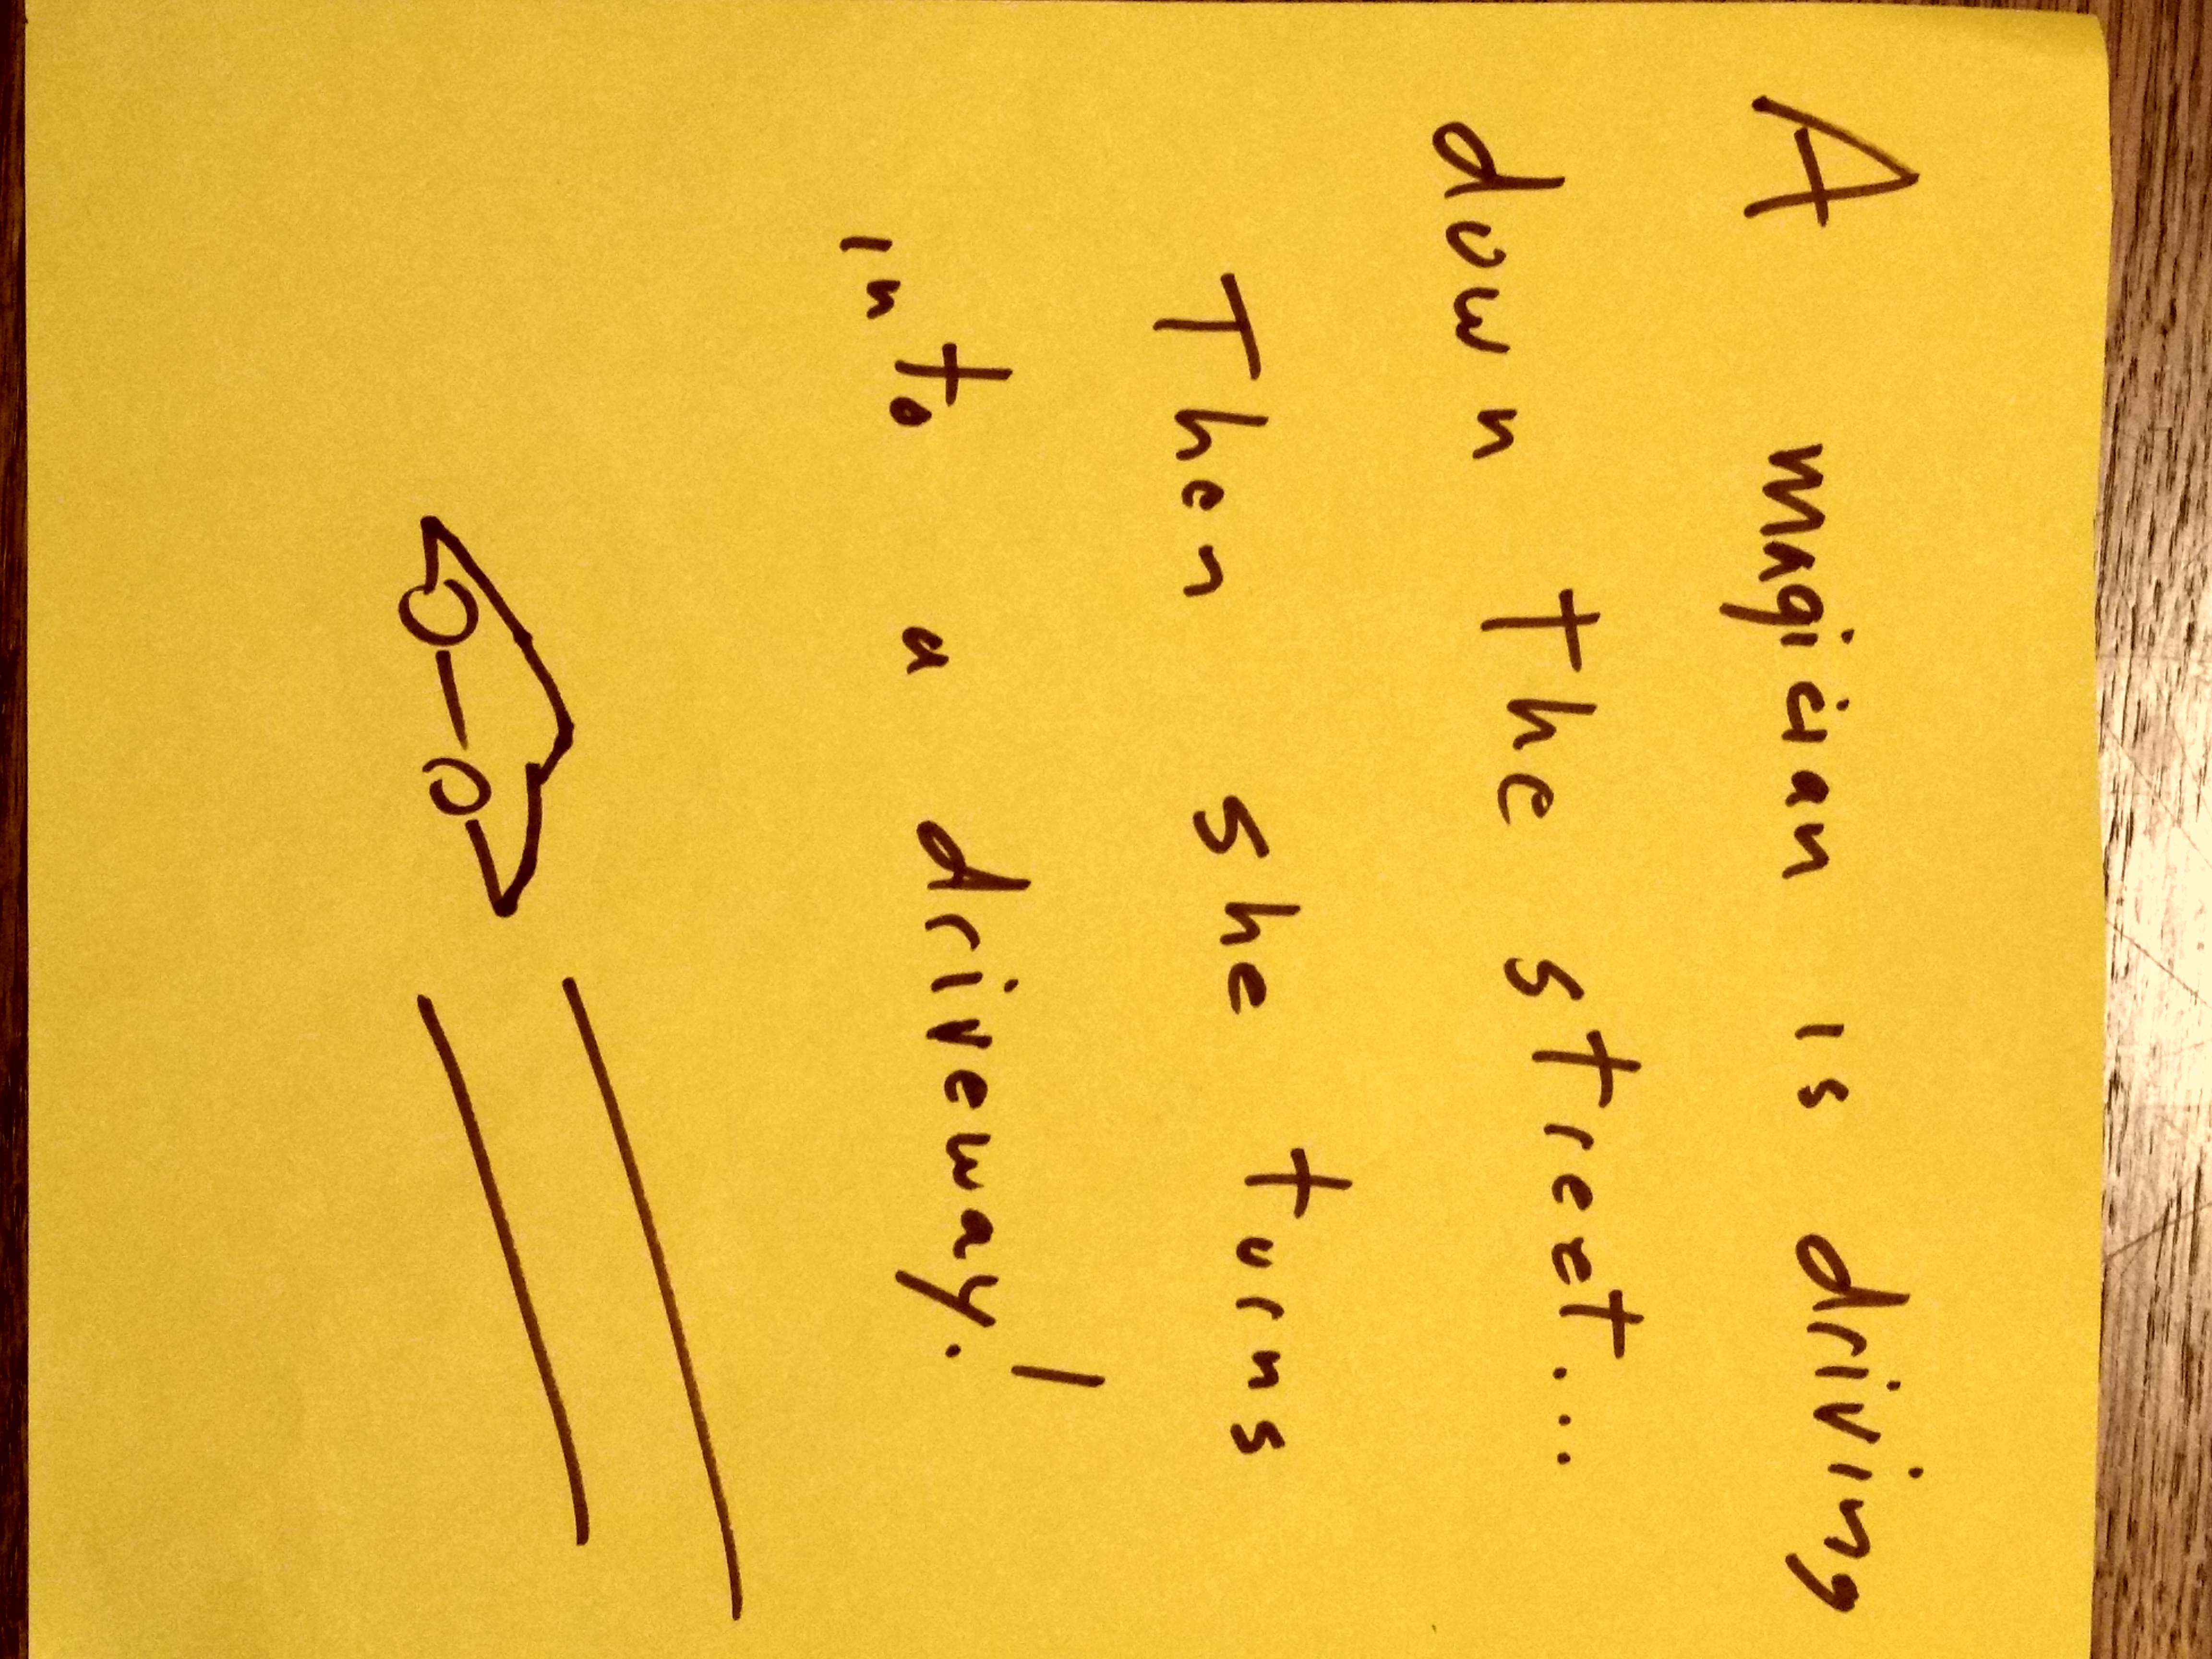 A magician is driving
down the street...
Then she turns
into a driveway!